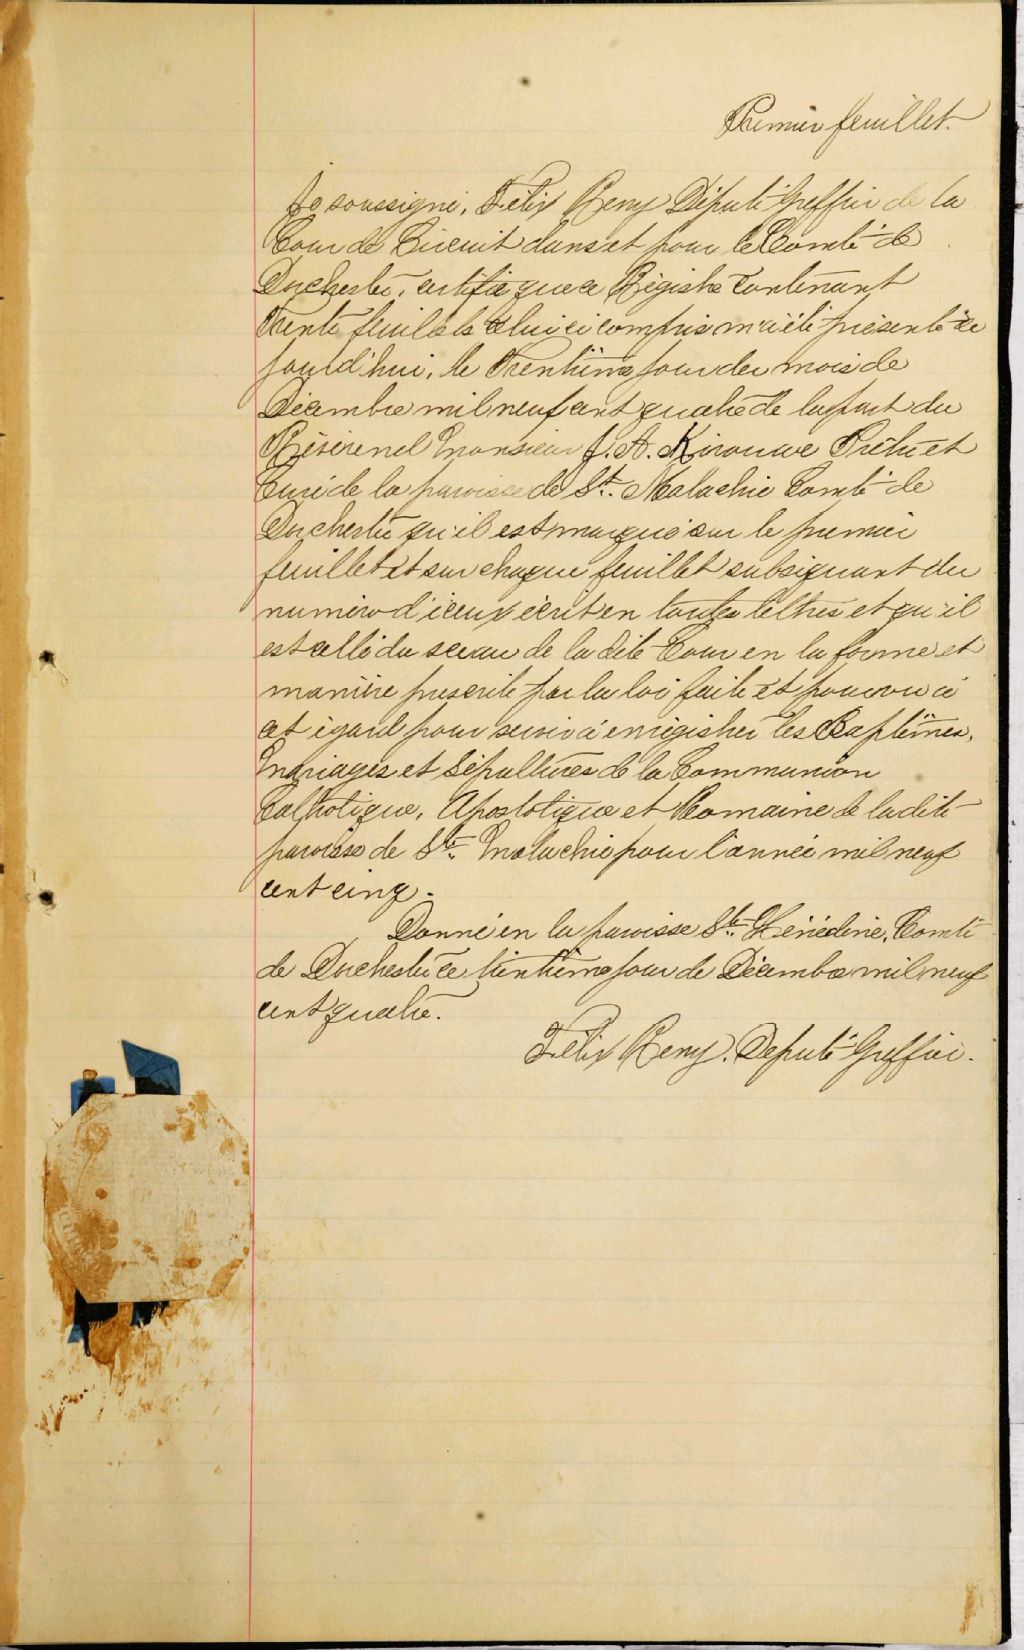 Premier feuillet.
Je soussigné, Félix Remy Député Greffier de la
Cour de Circuit dans et pour le Comté de
Dorchester, certifie que ce Régistre contenant
Trente feuillets celui ci compris m'a été présenté ce
jourd'hui, le Trentième jour du mois de
Décembre mil neuf cent quatre de la part du
Révérend Monsieur J. A. Kirouac Prêtre et
Curé de la paroisse de St. Malachie Comté de
Dorchester qu'il est marqué sur le premier
feuillet et sur chaque feuillet subséquant du
numéro d'iceux écrit en toutes lettres et qu'il
est scellé du sceau de la dite Cour en la forme et
manière prescrite par la loi faite et pourvue à
cet égard pour servir à enrégistrer les Baptêmes,
Mariages et Sépultures de la Communion
Catholique, Apostolique et Romaine de la dite
paroisse de St. Malachie pour l'année mil neuf
cent cinq.
Donné en la paroisse Ste Hénédine, Comté
de Dorchester ce trentième jour de Décembre mil neuf
cent quatre.
Félix Remy. Député Greffier.